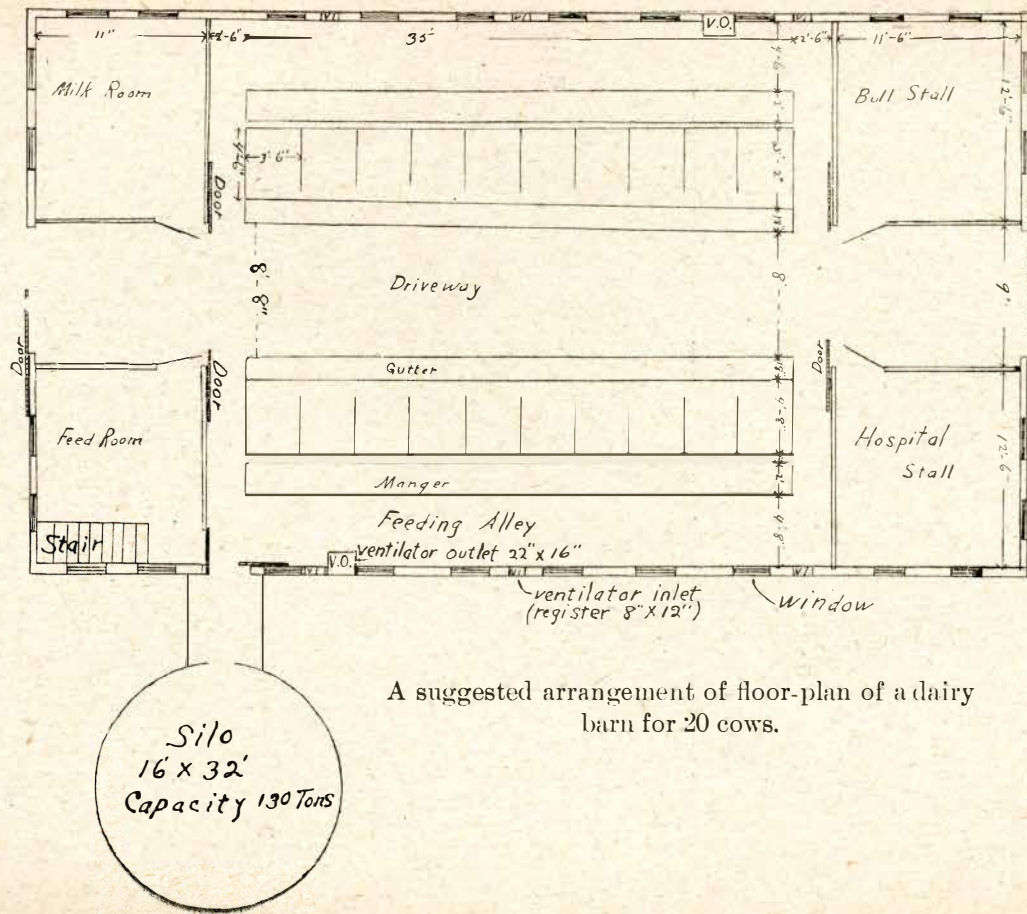 V.O.
11" 4-6" 35' 2'-6" 11'-6"
Milk Room
Bull Stall
4-6
12'-6"
2'
4'-6"
3'-6"
Door
18"
Driveway
8'-8"
8'-
9'
Door
Door
Door
Gutter
18"
4'-8"
Feed Room
Hospital
Stall
12'-6"
Manger
2'
Feeding Alley
4'-8"
Stair
V.O.
ventilator outlet 22" x 16"
ventilator inlet
(register 8" X 12")
window
A suggested arrangement of floor-plan of a dairy
barn for 20 cows.
Silo
16 X 32'
Capacity 130 Tons